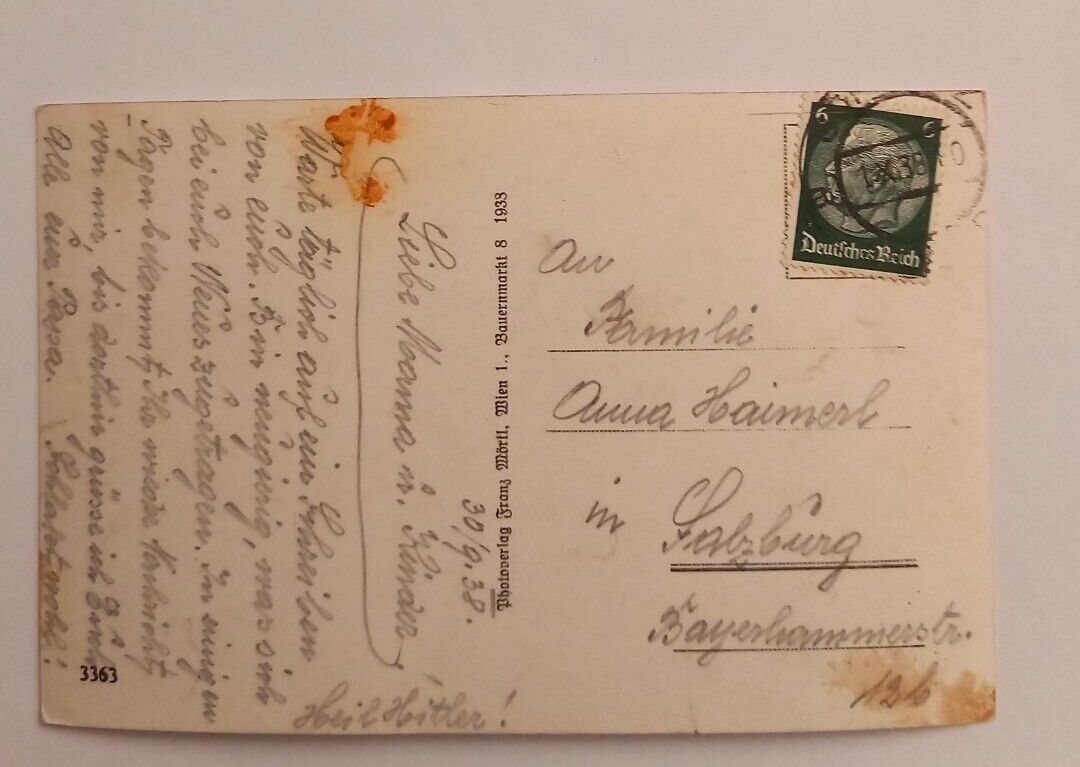 30/9.38.
Liebe Mama u. Kinder!
Warte täglich auf ein Schreiben
von euch. Bin neugierig, was sich
bei euch Neues zugetragen. In einigen
Tagen bekommt Ihr wieder Nachricht
von mir, bis dorthin grüsse ich Euch
Alle
Heil Hitler!
3363
Photoverlag Franz Mörtl, Wien 1., Bauernmarkt 8 1933
6 6
Deutsches Reich
38
An
Familie
Anna Haimerl
in Salzburg
Bayerhammerstr.
12b